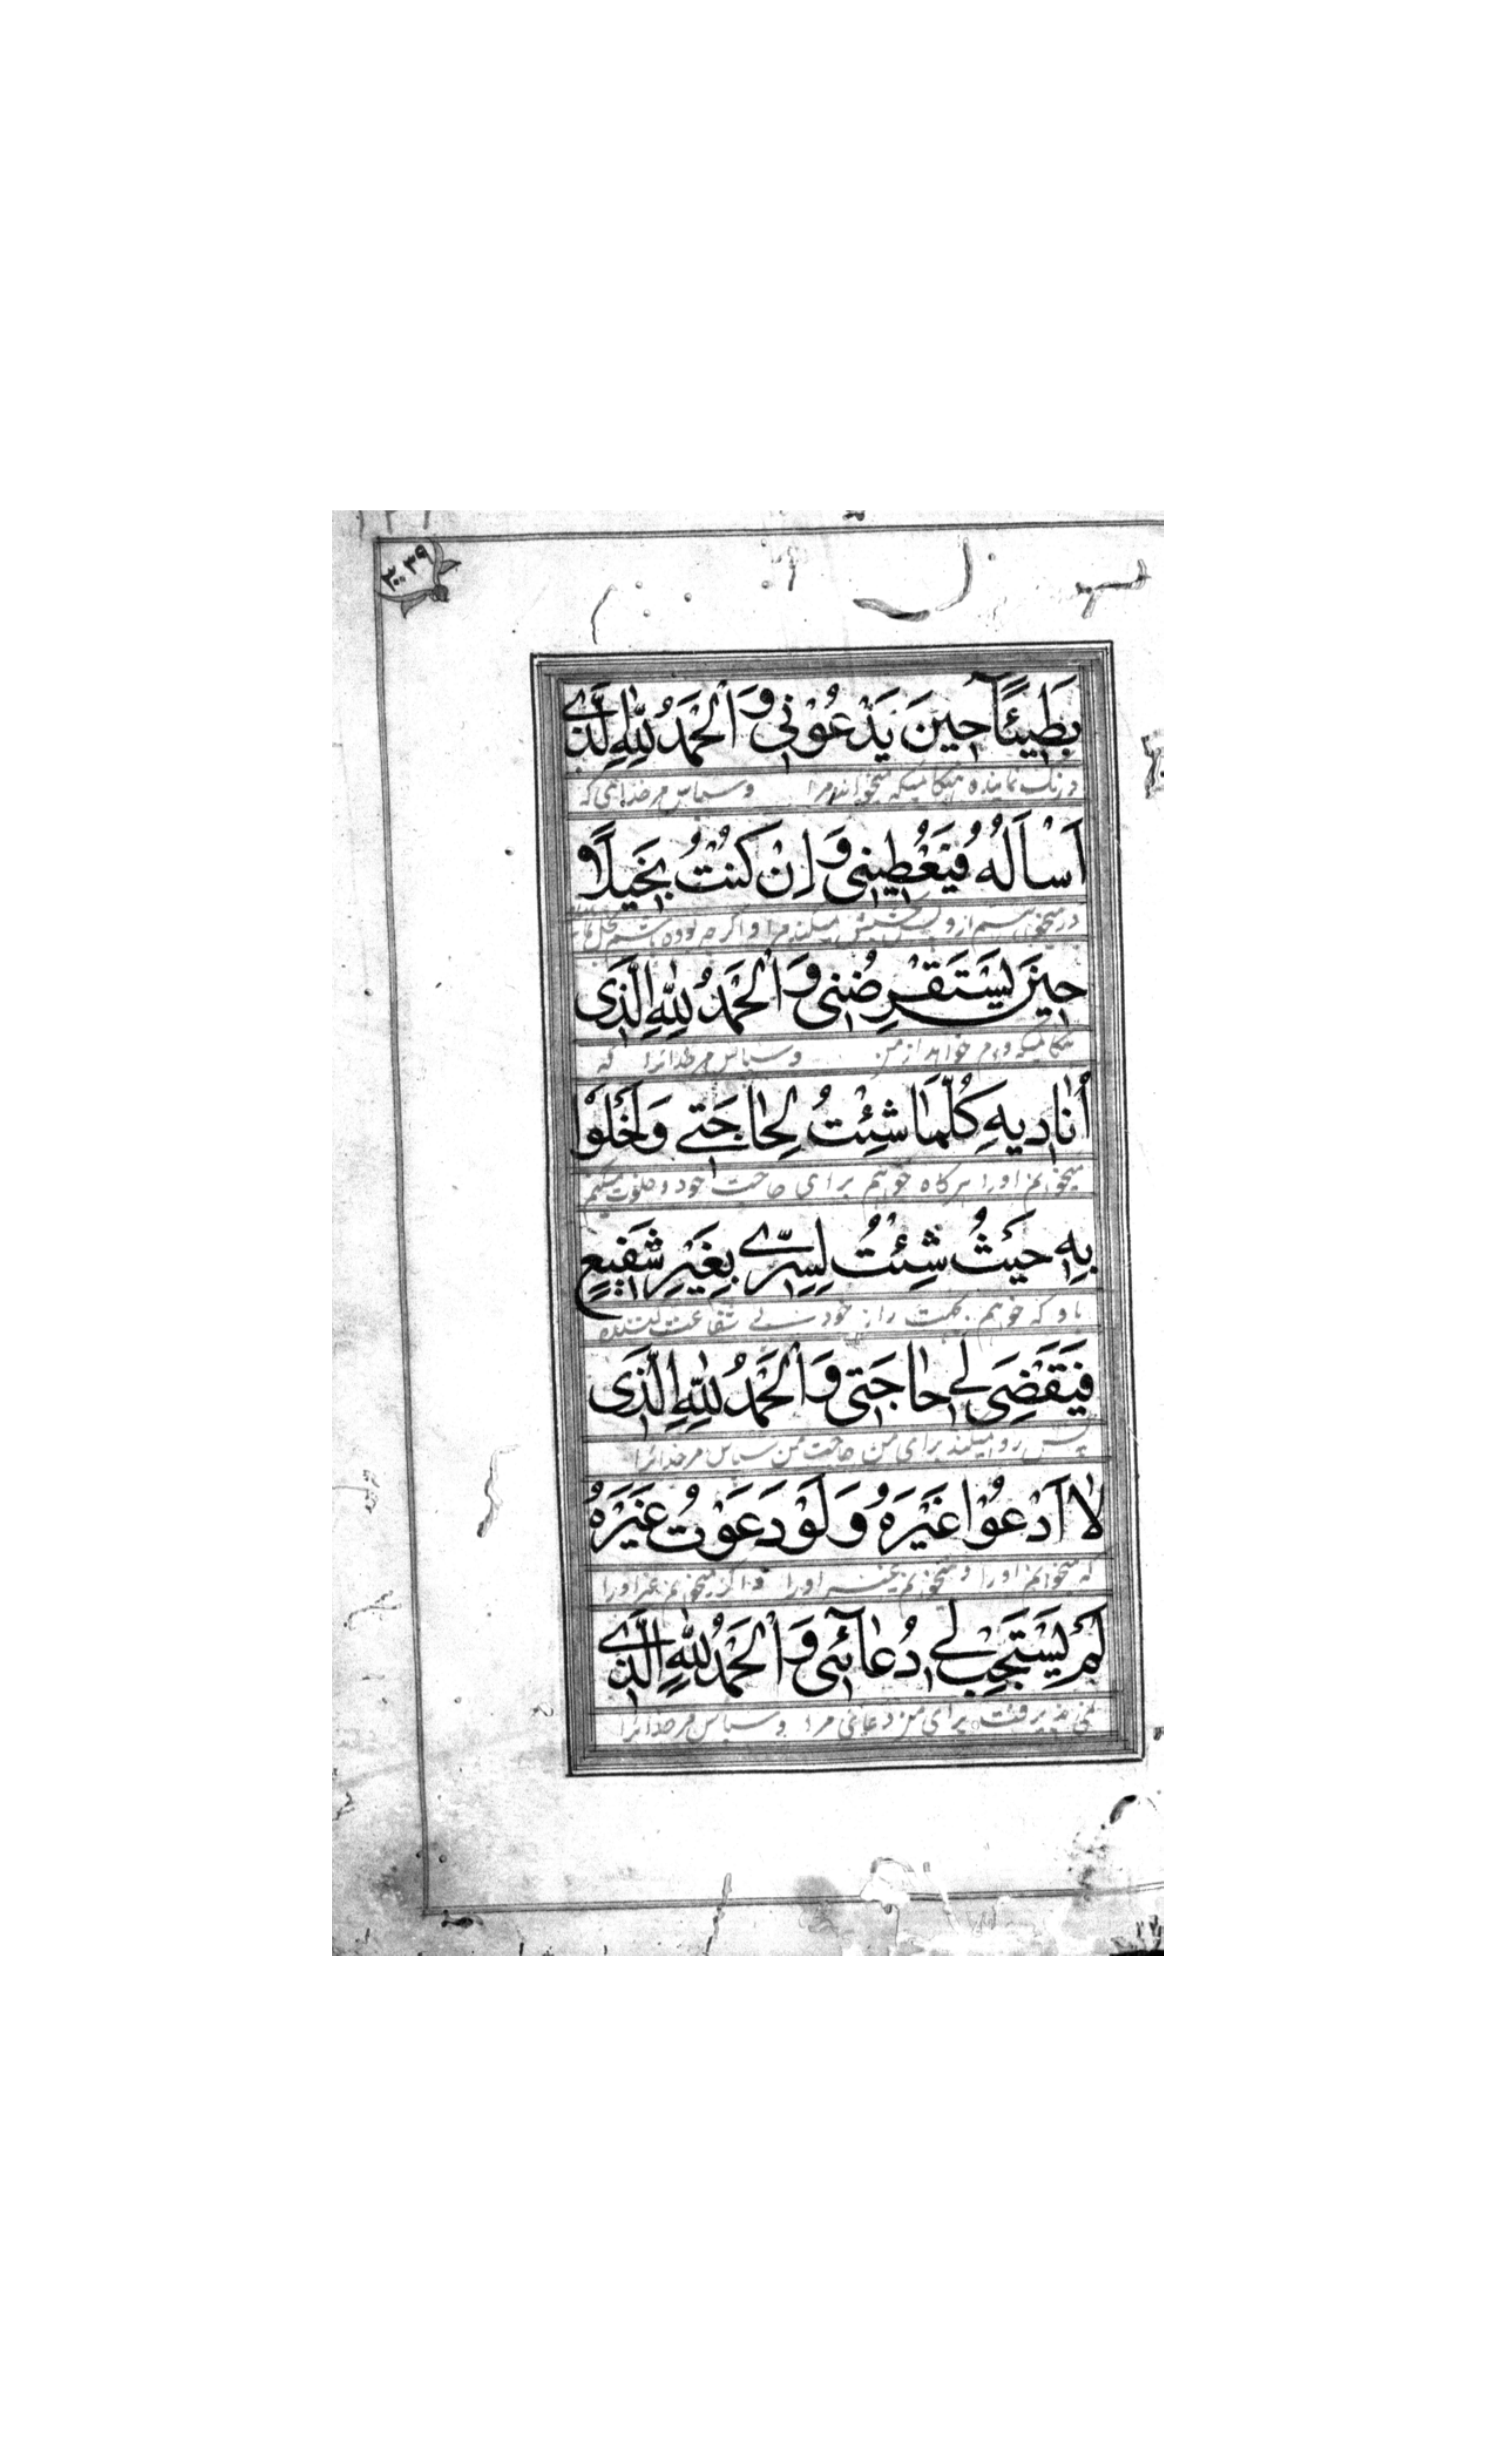 بَطٖيئًا حٖينَ يَدْعُوْنٖي وَ الْحَمْدُ لِلّٰهِ الَّذٖي
درنگ نماینده هنگامیکه میخواند مرا و سپاس مر خداهی که
اَسْاَلُهُ فَيُعْطٖينٖي وَ اِنْ كُنْتُ بَخٖيلًا
در میخواهیم از و پس بخشش میکند مرا و اگر چه بوده باشم
حٖينَ يَسْتَقْرِضُنٖي وَ الْحَمْدُ لِلّٰهِ الَّذٖي
هنگامیکه وام خواهد از من و سپاس مر خدائرا که
اُنٰادٖيهِ كُلَّمٰا شِئْتُ لِحٰاجَتٖي وَ اَخْلُوْا
میخوانم اورا هرگاه خواهم برای حاجت خود و خلوت میکنم
بِهٖ حَيْثُ شِئْتُ لِسِرّٖي بِغَيْرِ شَفٖيعٍ
با و که خواهم بجهت راز خود بی شفاعت کننده
فَيَقْضٖي لٖي حٰاجَتٖي وَ الْحَمْدُ لِلّٰهِ الَّذٖي
پس روا میکند برای من حاجت من سپاس مر خدائرا
لٰا اَدْعُوْا غَيْرَهُ وَ لَوْ دَعَوْتُ غَيْرَهُ
که میخوانم اورا و نمیخوانم بغیر اورا و اگر میخوانم غیر اورا
لَمْ يَسْتَجِبْ لٖي دُعٰآئٖي وَ الْحَمْدُ لِلّٰهِ الَّذٖي
نمی پذیرفت برای من دعائی مرا و سپاس مر خدائرا